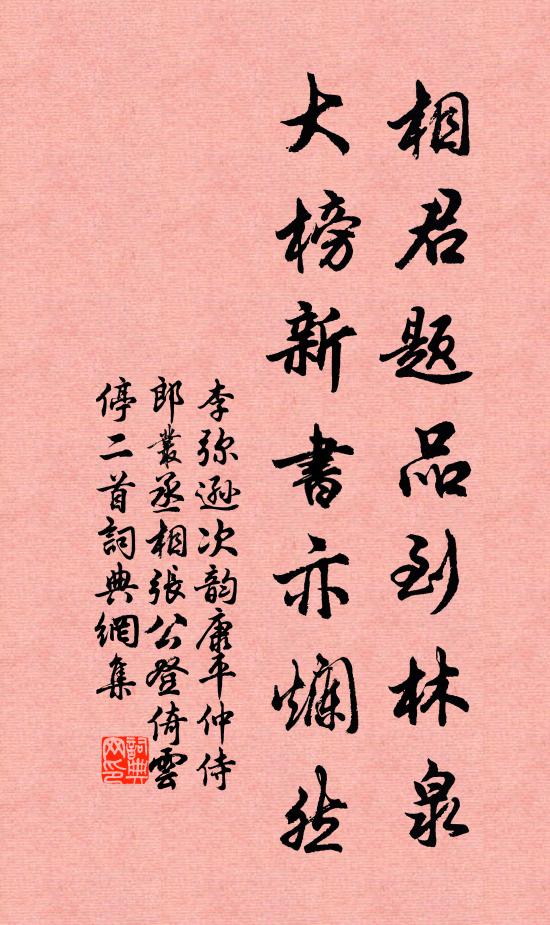 相君题品到林泉
大榜新書亦爛然
李弥遜次韵康平仲侍
郎叢丞相張公登倚雲
停二首詞典網集
詞典
网印